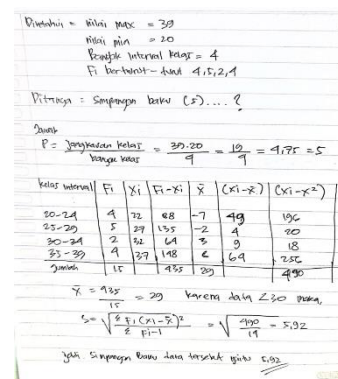 Diketahui = nilai max = 39
nilai min = 20
Banyak interval kelas = 4
Fi berturut-turut 4,5,2,4
Ditanya : Simpangan baku (s)....?
Jawab
P = Jangkauan kelas / banyak kelas = 39-20 / 4 = 19 / 4 = 4,75 = 5
kelas interval Fi Xi Fi-Xi x̄ (Xi-x̄) (Xi-x²)
20-24 4 22 88 -7 49 196
25-29 5 27 135 -2 4 20
30-34 2 32 64 3 9 18
35-39 4 37 148 8 64 256
Jumlah 15 435 29 490
x̄ = 435 / 15 = 29 karena data <30 maka,
S = √ Σ Fi (xi-x̄)² / Σ Fi-1 = √ 490 / 14 = 5,92
Jadi simpangan Baku data tersebut yaitu 5,92